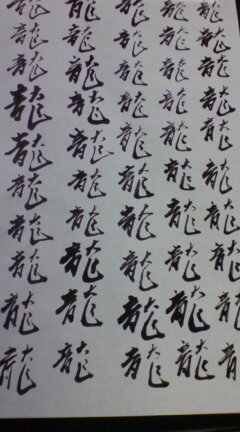 龍龍龍龍龍
龍龍龍龍龍
龍龍龍龍龍
龍龍龍龍龍
龍龍龍龍龍
龍龍龍龍龍
龍龍龍龍龍
龍龍龍龍龍
龍龍龍龍龍
龍龍龍龍龍